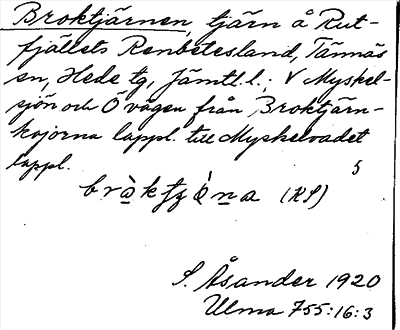 Broktjärnen, tjärn å Rut-
fjällets Renbetesland, Tännäs
sn, Hede tg, Jämtl. l.; V Myskel-
sjön och Ö vägen från Broktjärn-
kojorna lappl. till Myskelvadet
lappl.
(KS)
S. Åsander 1920
Ulma 755:16:3